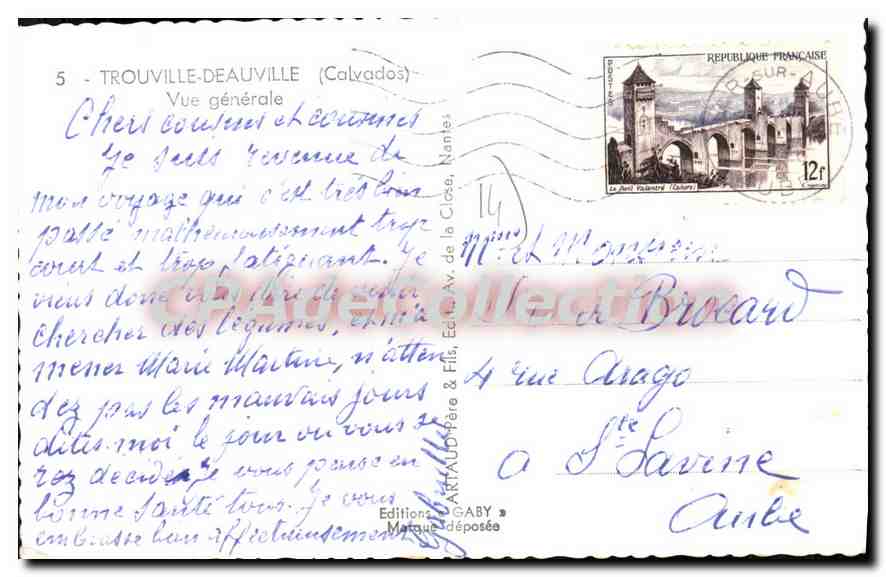 5 - TROUVILLE-DEAUVILLE (Calvados)
Vue générale
Chers cousins et cousines
Je suis revenue de
mon voyage qui s'est très bien
passé malheureusement trop
court et trop fatiguant. Je
viens donc vous dire de venir
chercher des légumes, et m'a
mener Marie Martine, n'atten
dez pas les mauvais jours
dites-moi le jour où vous se
rez décidés Je vous pense en
bonne santé tous. Je vous
embrasse bien affectueusement
Gabrielle
ARTAUD Père & Fils, Edit., Av. de la Close, Nantes
Editions « GABY »
Marque déposée
14
REPUBLIQUE FRANÇAISE
POSTES
Le Pont Valentré (Cahors)
12f
-SUR-AUBE
AUBE
Mme et Monsieur
Brocard
4 rue Arago
à Ste Savine
Aube
CPAgeCollection